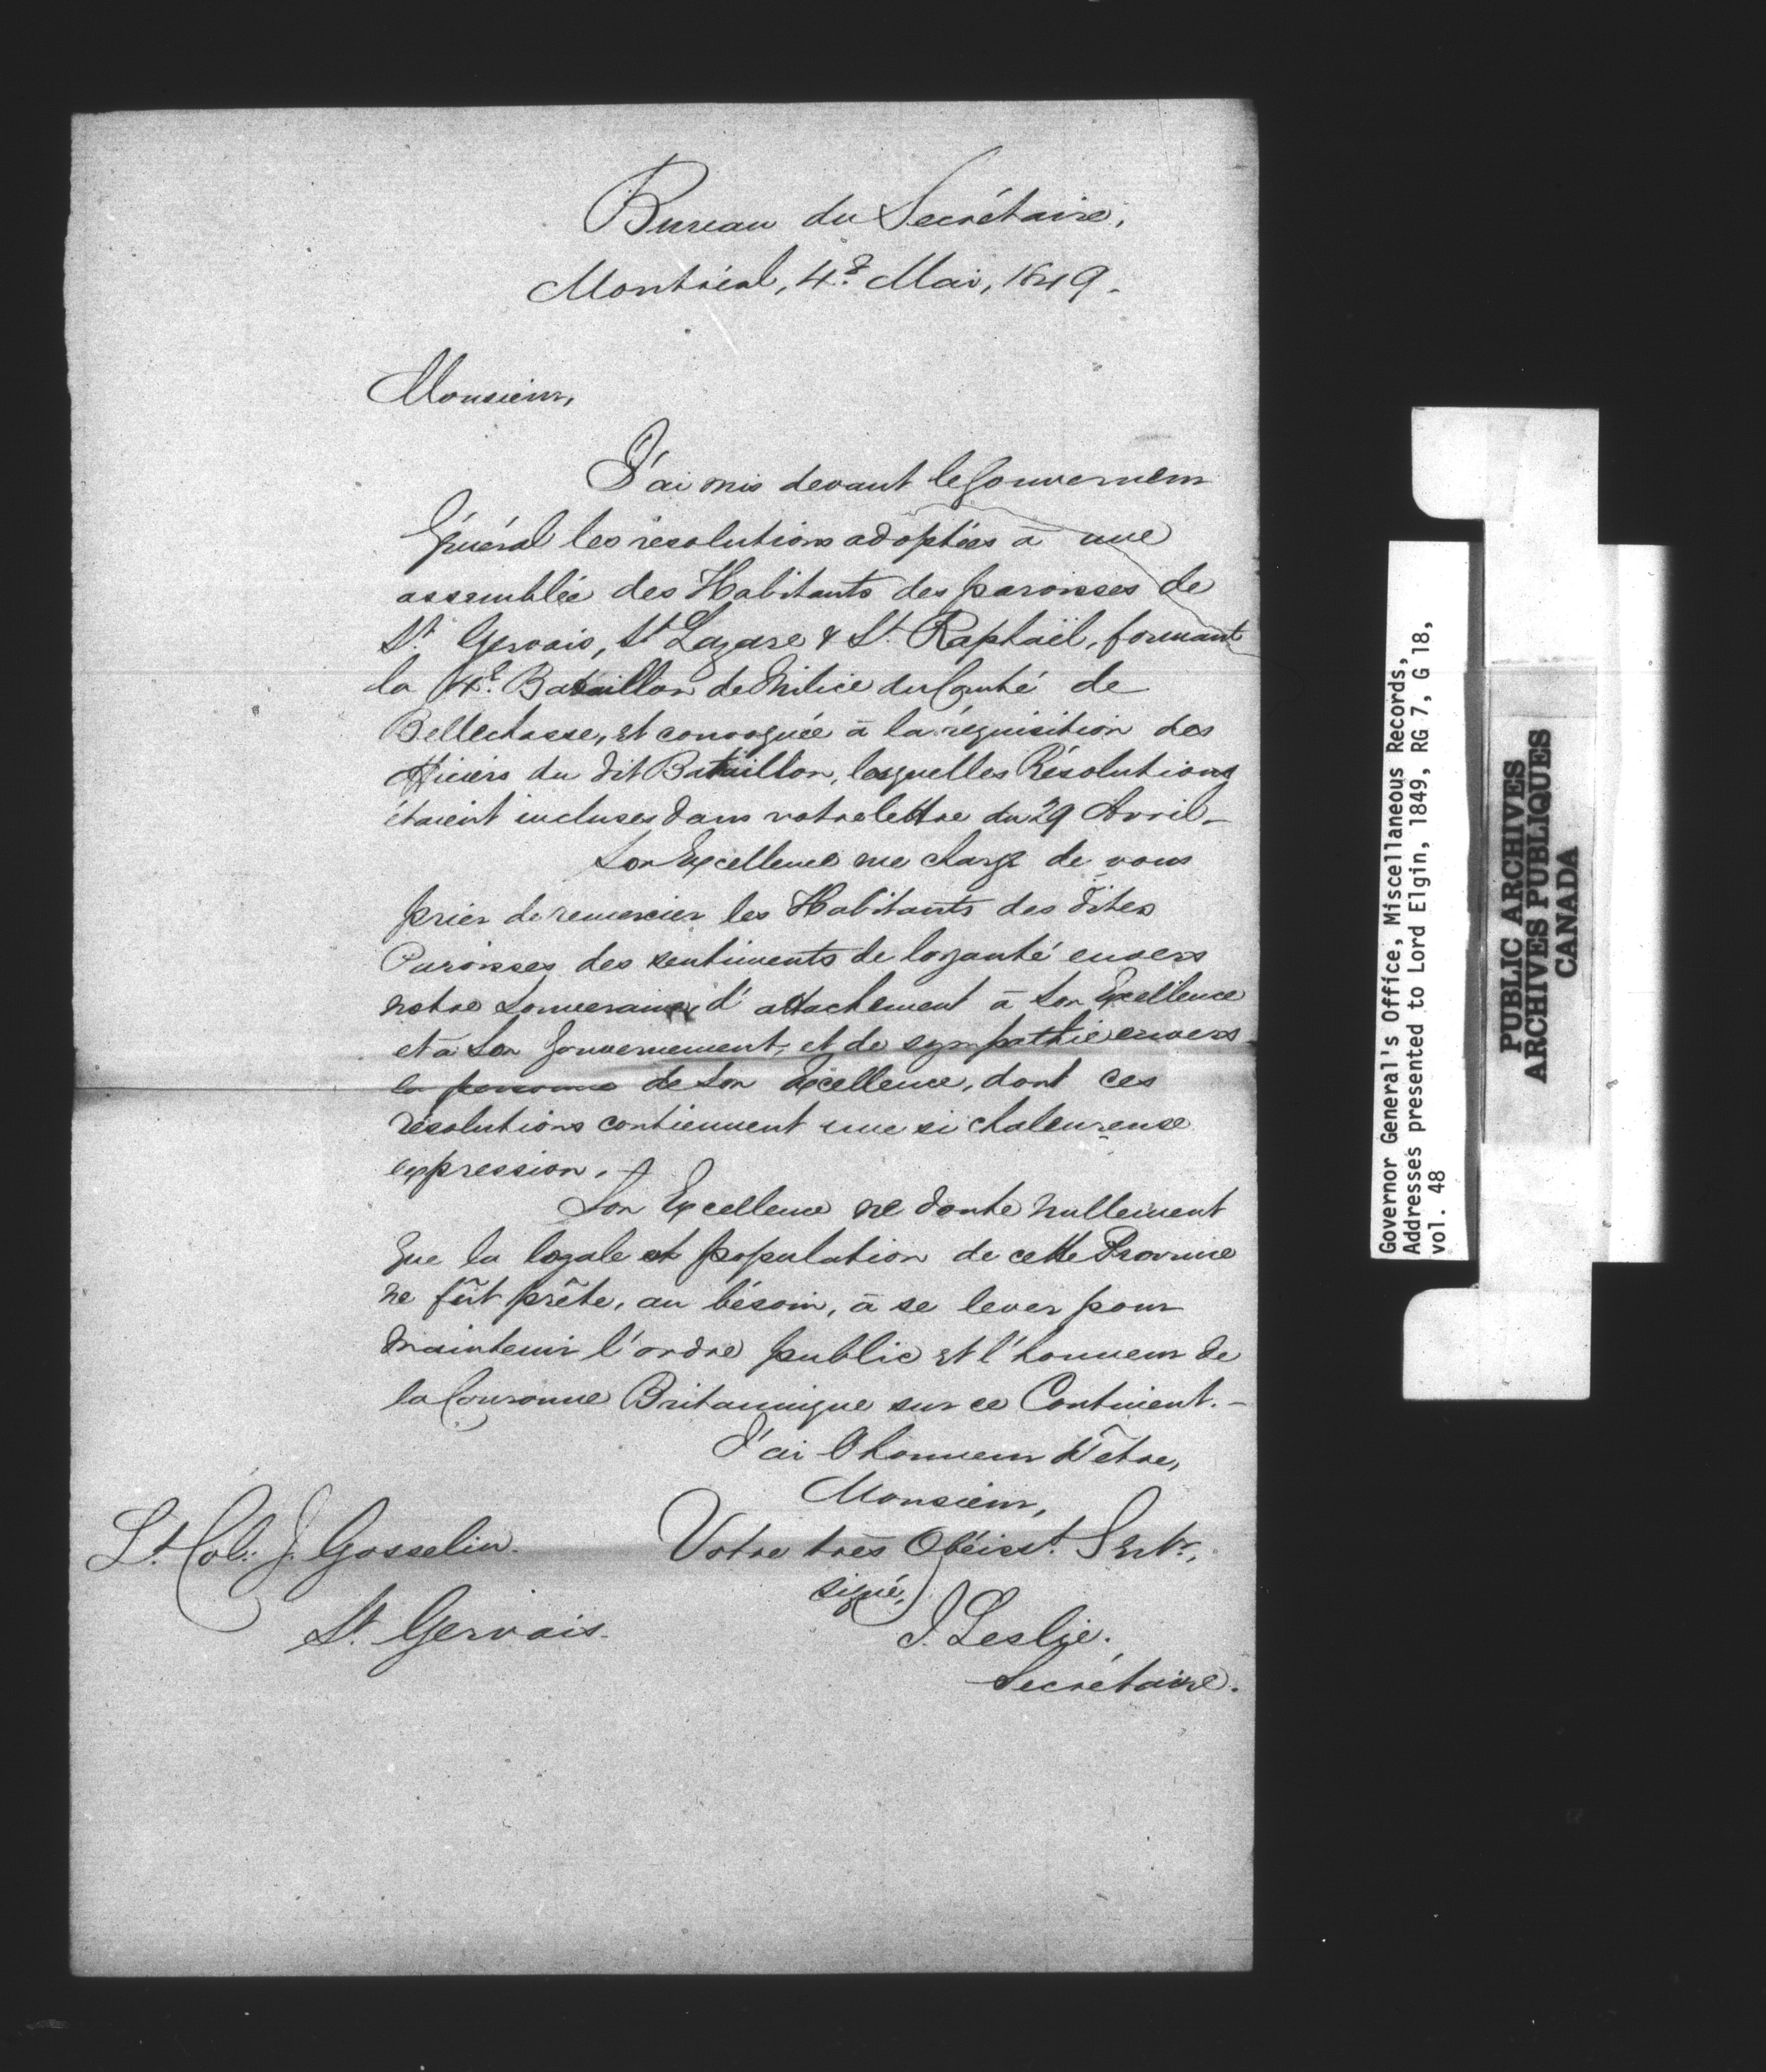 Bureau du Secrétaire,
Montréal, 4e Mai, 1849.
Monsieur,
J'ai mis devant le Gouverneur
Général les résolutions adoptées à une
assemblée des Habitants des paroisses de
St. Gervais, St Lazare & St. Raphaël, formant
la 4e. Bataillon de Milice du Comté de
Bellechasse, et convoquée à la réquisition des
Officiers du dit Bataillon, lesquelles Résolutions
étaient incluses dans votre lettre du 29 Avril.
Son Excellence me charge de vous
prier de remercier les Habitants des dites
Paroisses des sentiments de loyauté envers
notre Souveraine, d'attachement à Son Excellence
et à Son Gouvernement, et de sympathie envers
la personne de Son Excellence, dont ces
résolutions contiennent une si chaleureuse
expression.
Son Excellence ne doute nullement
que la loyale et population de cette Province
ne fût prête, au bésoin, à se lever pour
maintenir l'ordre public et l'honneur de
la Couronne Britannique sur ce Continent.-
J'ai l'honneur d'être,
Monsieur,
Votre très Obéisst. Servtr.,
signé,) J. Leslie.
Secrétaire.
Lt. Col. J. Gosselin.
St. Gervais.
Governor General's Office, Miscellaneous Records,
Addresses presented to Lord Elgin, 1849, RG 7, G 18,
vol. 48
PUBLIC ARCHIVES
ARCHIVES PUBLIQUES
CANADA